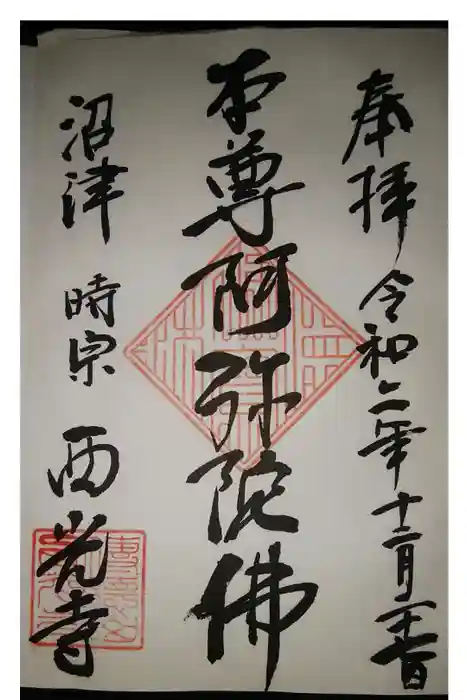 奉拝 令和二年十二月
本尊阿弥陀佛
沼津 時宗 西光寺